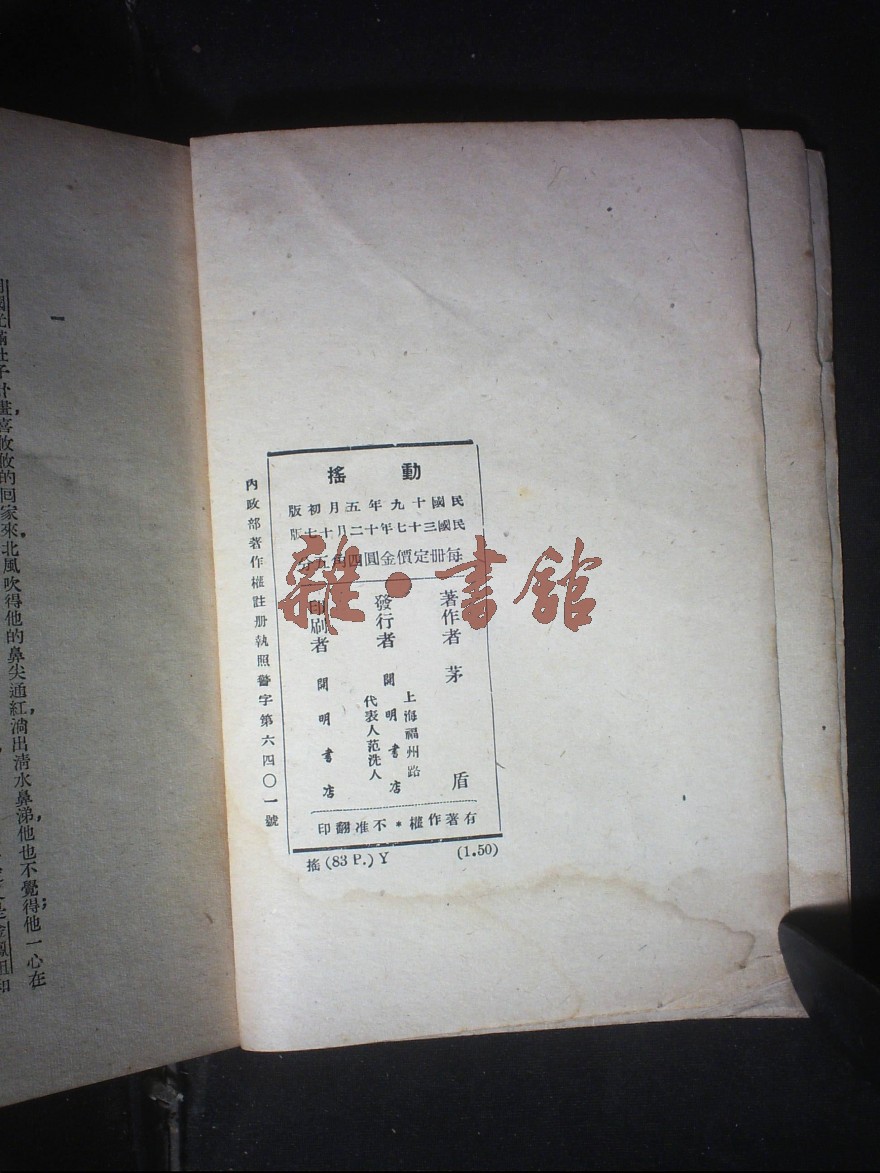 一
滿肚子計畫，喜孜孜的回家來。北風吹得他的鼻尖通紅，淌出清水鼻涕，他也不覺得；他一心在
動搖
民國十九年五月初版
民國三十七年十二月十七版
每册定價金圓四角五分
著作者 茅盾
發行者
上海福州路
開明書店
代表人范洗人
印刷者 開明書店
有著作權*不准翻印
搖(83 P.) Y (1.50)
內政部著作權註册執照警字第六四〇一號
雜·書館